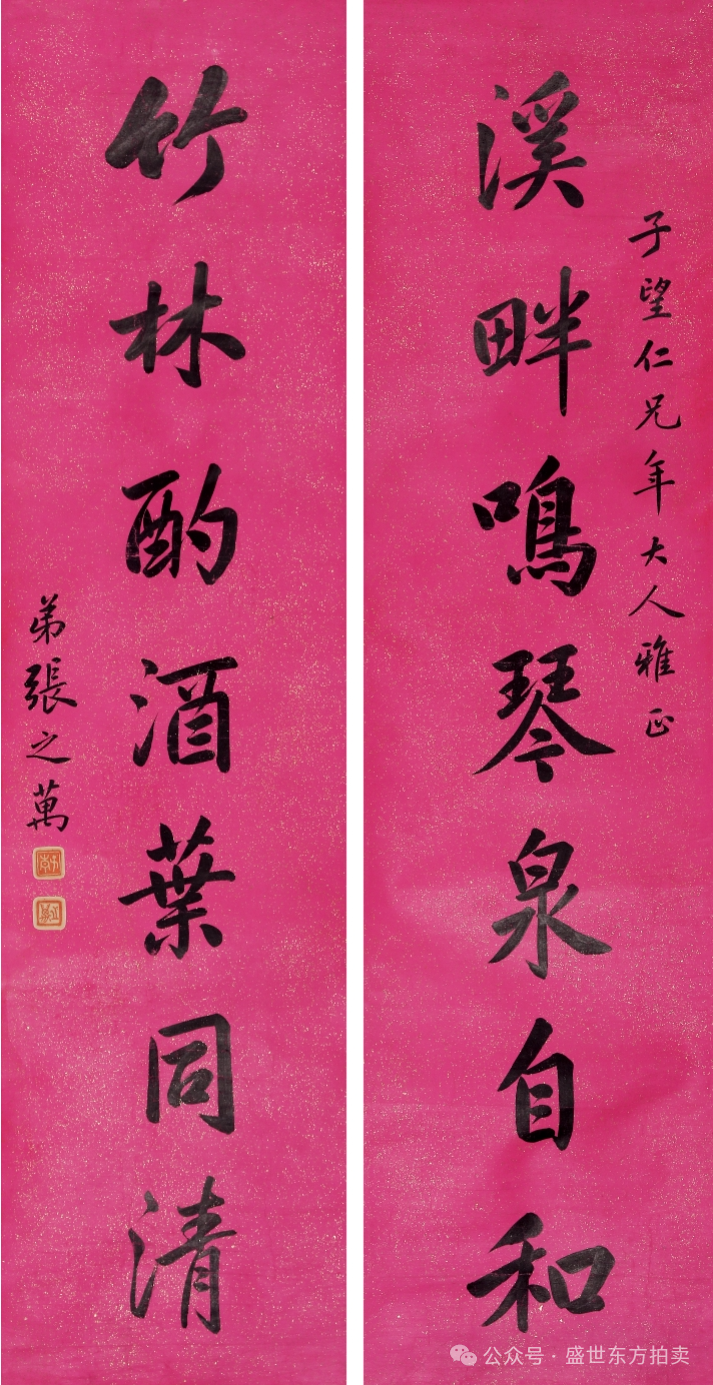 子望仁兄年大人雅正
溪畔鳴琴泉自和
竹林酌酒葉同清
弟張之萬
公众号·盛世东方拍卖